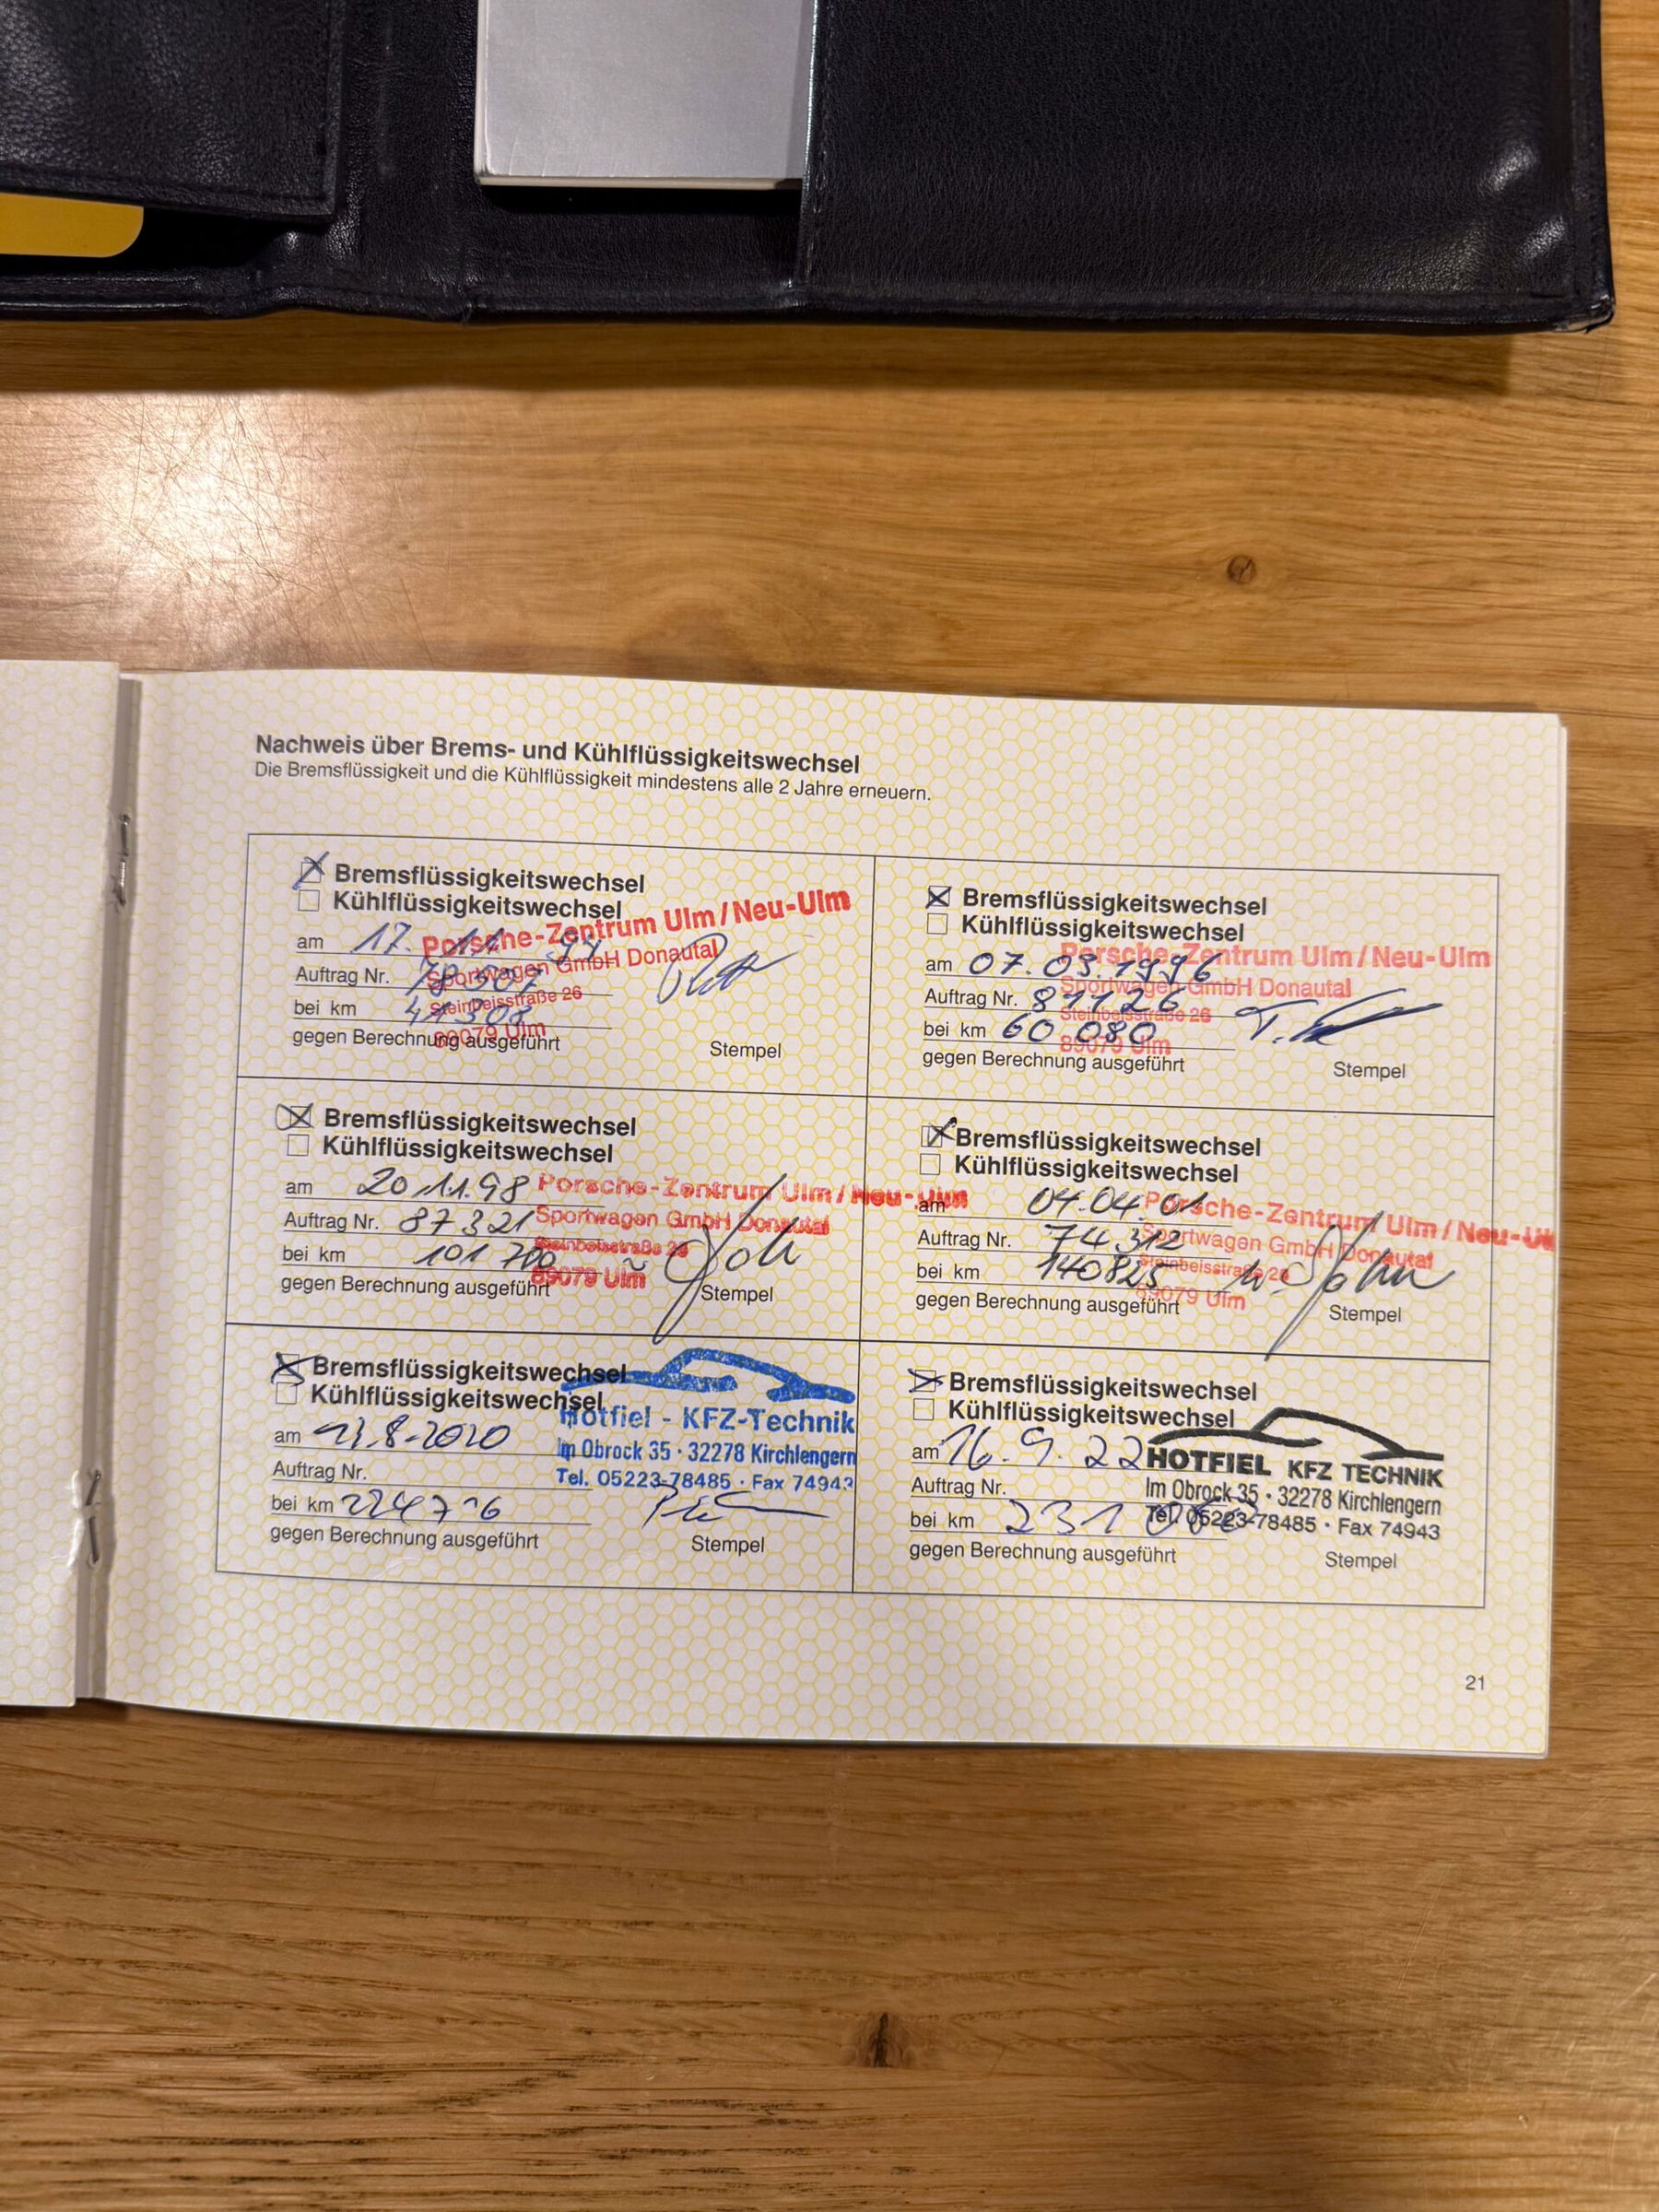 Nachweis über Brems- und Kühlflüssigkeitswechsel
Die Bremsflüssigkeit und die Kühlflüssigkeit mindestens alle 2 Jahre erneuern.
Bremsflüssigkeitswechsel
Kühlflüssigkeitswechsel
Porsche-Zentrum Ulm/Neu-Ulm
am 17. 11 94
Sportwagen GmbH Donautal
Auftrag Nr.
Steinbeisstraße 26
bei km 41 308
89079 Ulm
gegen Berechnung ausgeführt
Stempel
Bremsflüssigkeitswechsel
Kühlflüssigkeitswechsel
Porsche-Zentrum Ulm/Neu-Ulm
am 07.03.1996
Sportwagen GmbH Donautal
Auftrag Nr. 81126
Steinbeisstraße 26
bei km 60 080
89079 Ulm
gegen Berechnung ausgeführt
Stempel
Bremsflüssigkeitswechsel
Kühlflüssigkeitswechsel
am 20.11.98
Porsche-Zentrum Ulm/Neu-Ulm
Auftrag Nr. 87321
Sportwagen GmbH Donautal
Steinbeisstraße 26
bei km 101 700
89079 Ulm
gegen Berechnung ausgeführt
Stempel
Bremsflüssigkeitswechsel
Kühlflüssigkeitswechsel
am 04.04.01
Porsche-Zentrum Ulm/Neu-Ulm
Auftrag Nr. 74 312
Sportwagen GmbH Donautal
Steinbeisstraße 26
bei km 140825
89079 Ulm
gegen Berechnung ausgeführt
Stempel
Bremsflüssigkeitswechsel
Kühlflüssigkeitswechsel
Hotfiel - KFZ-Technik
am
Im Obrock 35 · 32278 Kirchlengern
Auftrag Nr.
Tel. 05223-78485 · Fax 74943
bei km
gegen Berechnung ausgeführt
Stempel
Bremsflüssigkeitswechsel
Kühlflüssigkeitswechsel
am 16.9.22
HOTFIEL KFZ TECHNIK
Auftrag Nr.
Im Obrock 35 · 32278 Kirchlengern
bei km 231
Tel. 05223-78485 · Fax 74943
gegen Berechnung ausgeführt
Stempel
21